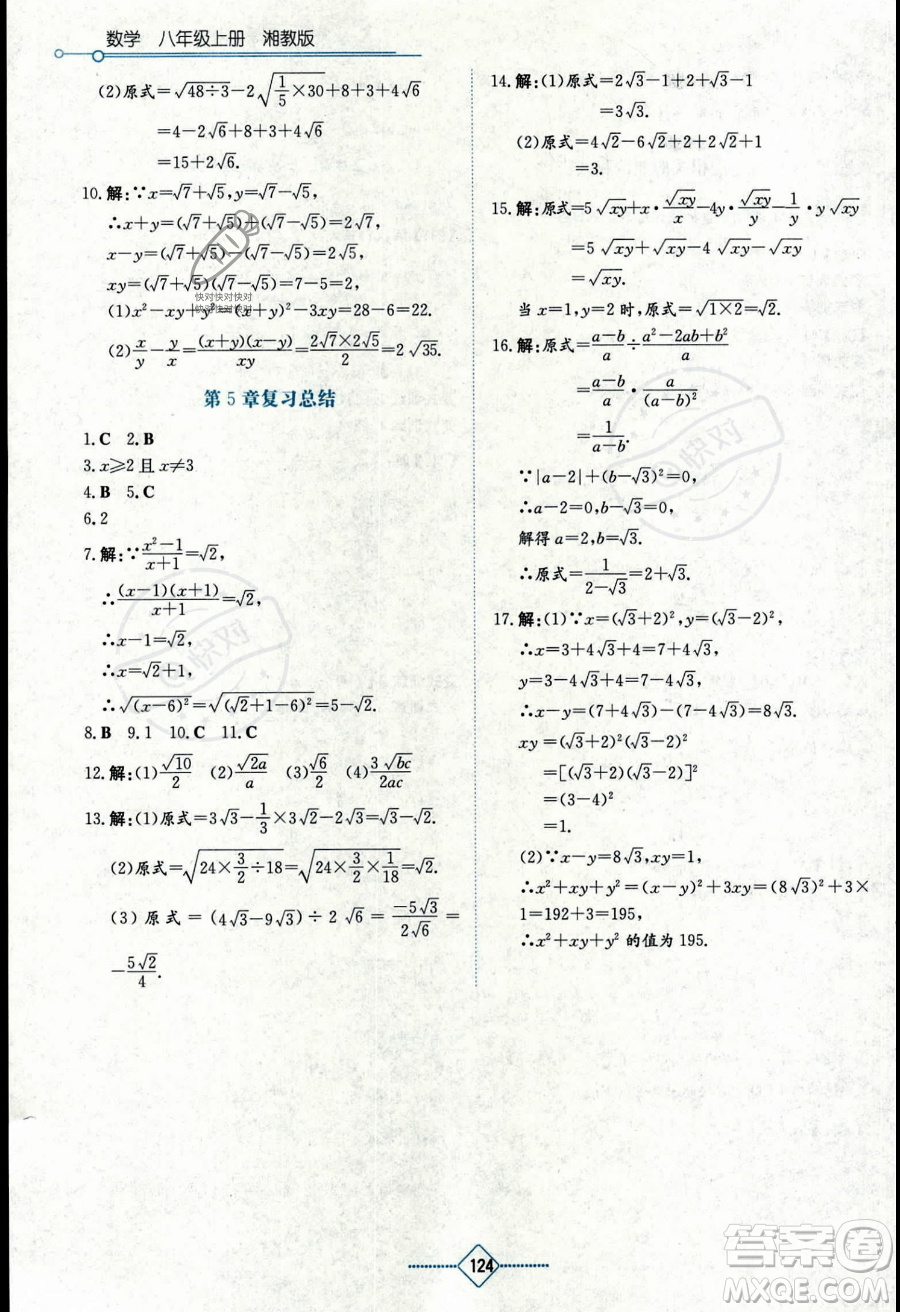 数学 八年级上册 湘教版
(2)原式=√(48÷3)-2√(1/5×30)+8+3+4√6
=4-2√6+8+3+4√6
=15+2√6.
10.解:∵x=√7+√5,y=√7-√5,
∴x+y=(√7+√5)+(√7-√5)=2√7,
x-y=(√7+√5)-(√7-√5)=2√5,
xy=(√7+√5)(√7-√5)=7-5=2,
(1)x²-xy+y²=(x+y)²-3xy=28-6=22.
(2)x/y-y/x=(x+y)(x-y)/xy=2√7×2√5/2=2√35.
第5章复习总结
1.C 2.B
3.x≥2且x≠3
4.B 5.C
6.2
7.解:∵(x²-1)/(x+1)=√2,
∴(x-1)(x+1)/(x+1)=√2,
∴x-1=√2,
∴x=√2+1,
∴√(x-6)²=√(√2+1-6)²=5-√2.
8.B 9.1 10.C 11.C
12.解:(1)√10/2 (2)√2a/a (3)√6/2 (4)3√bc/2ac
13.解:(1)原式=3√3-1/3×3√2-2√3=√3-√2.
(2)原式=√(24×3/2÷18)=√(24×3/2×1/18)=√2.
(3)原式=(4√3-9√3)÷2√6=-5√3/2√6=
-5√2/4.
14.解:(1)原式=2√3-1+2+√3-1
=3√3.
(2)原式=4√2-6√2+2+2√2+1
=3.
15.解:原式=5√xy+x·√xy/x-4y·√xy/y-1/y·y√xy
=5√xy+√xy-4√xy-√xy
=√xy.
当x=1,y=2时,原式=√(1×2)=√2.
16.解:原式=(a-b)/a÷(a²-2ab+b²)/a
=(a-b)/a·a/(a-b)²
=1/(a-b).
∵|a-2|+(b-√3)²=0,
∴a-2=0,b-√3=0,
解得a=2,b=√3.
∴原式=1/(2-√3)=2+√3.
17.解:(1)∵x=(√3+2)²,y=(√3-2)²,
∴x=3+4√3+4=7+4√3,
y=3-4√3+4=7-4√3,
∴x-y=(7+4√3)-(7-4√3)=8√3.
xy=(√3+2)²(√3-2)²
=[(√3+2)(√3-2)]²
=(3-4)²
=1.
(2)∵x-y=8√3,xy=1,
∴x²+xy+y²=(x-y)²+3xy=(8√3)²+3×
1=192+3=195,
∴x²+xy+y²的值为195.
124
快对快对快对
快对快对快对
快对
快对
答案卷
MXQE.COM